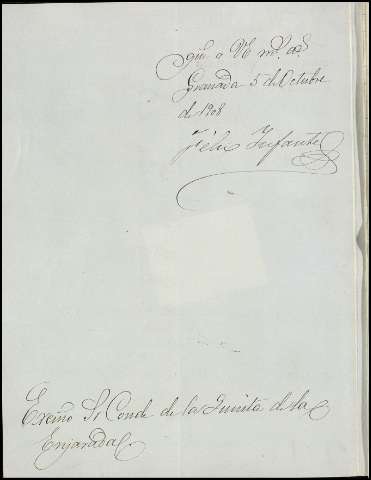 gue a VE ms. as.
Granada 5 de Octubre
de 1908
Félix Infante
Excmo Sr Conde de la Quinta de la
Enjarada